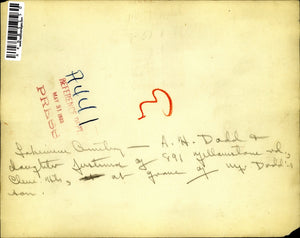 A441
REFERENCE DEPT.
MAY 31 1933
PRESS
3
— A. H. Dodd &
daughter Justina of 891 Yellowstone rd.,
Cleve. Hts, at grave of Mr. Dodd's
son.